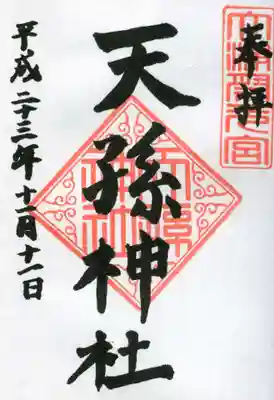 奉拝
天孫神社
天孫
神社
平成二十三年十一月十一日